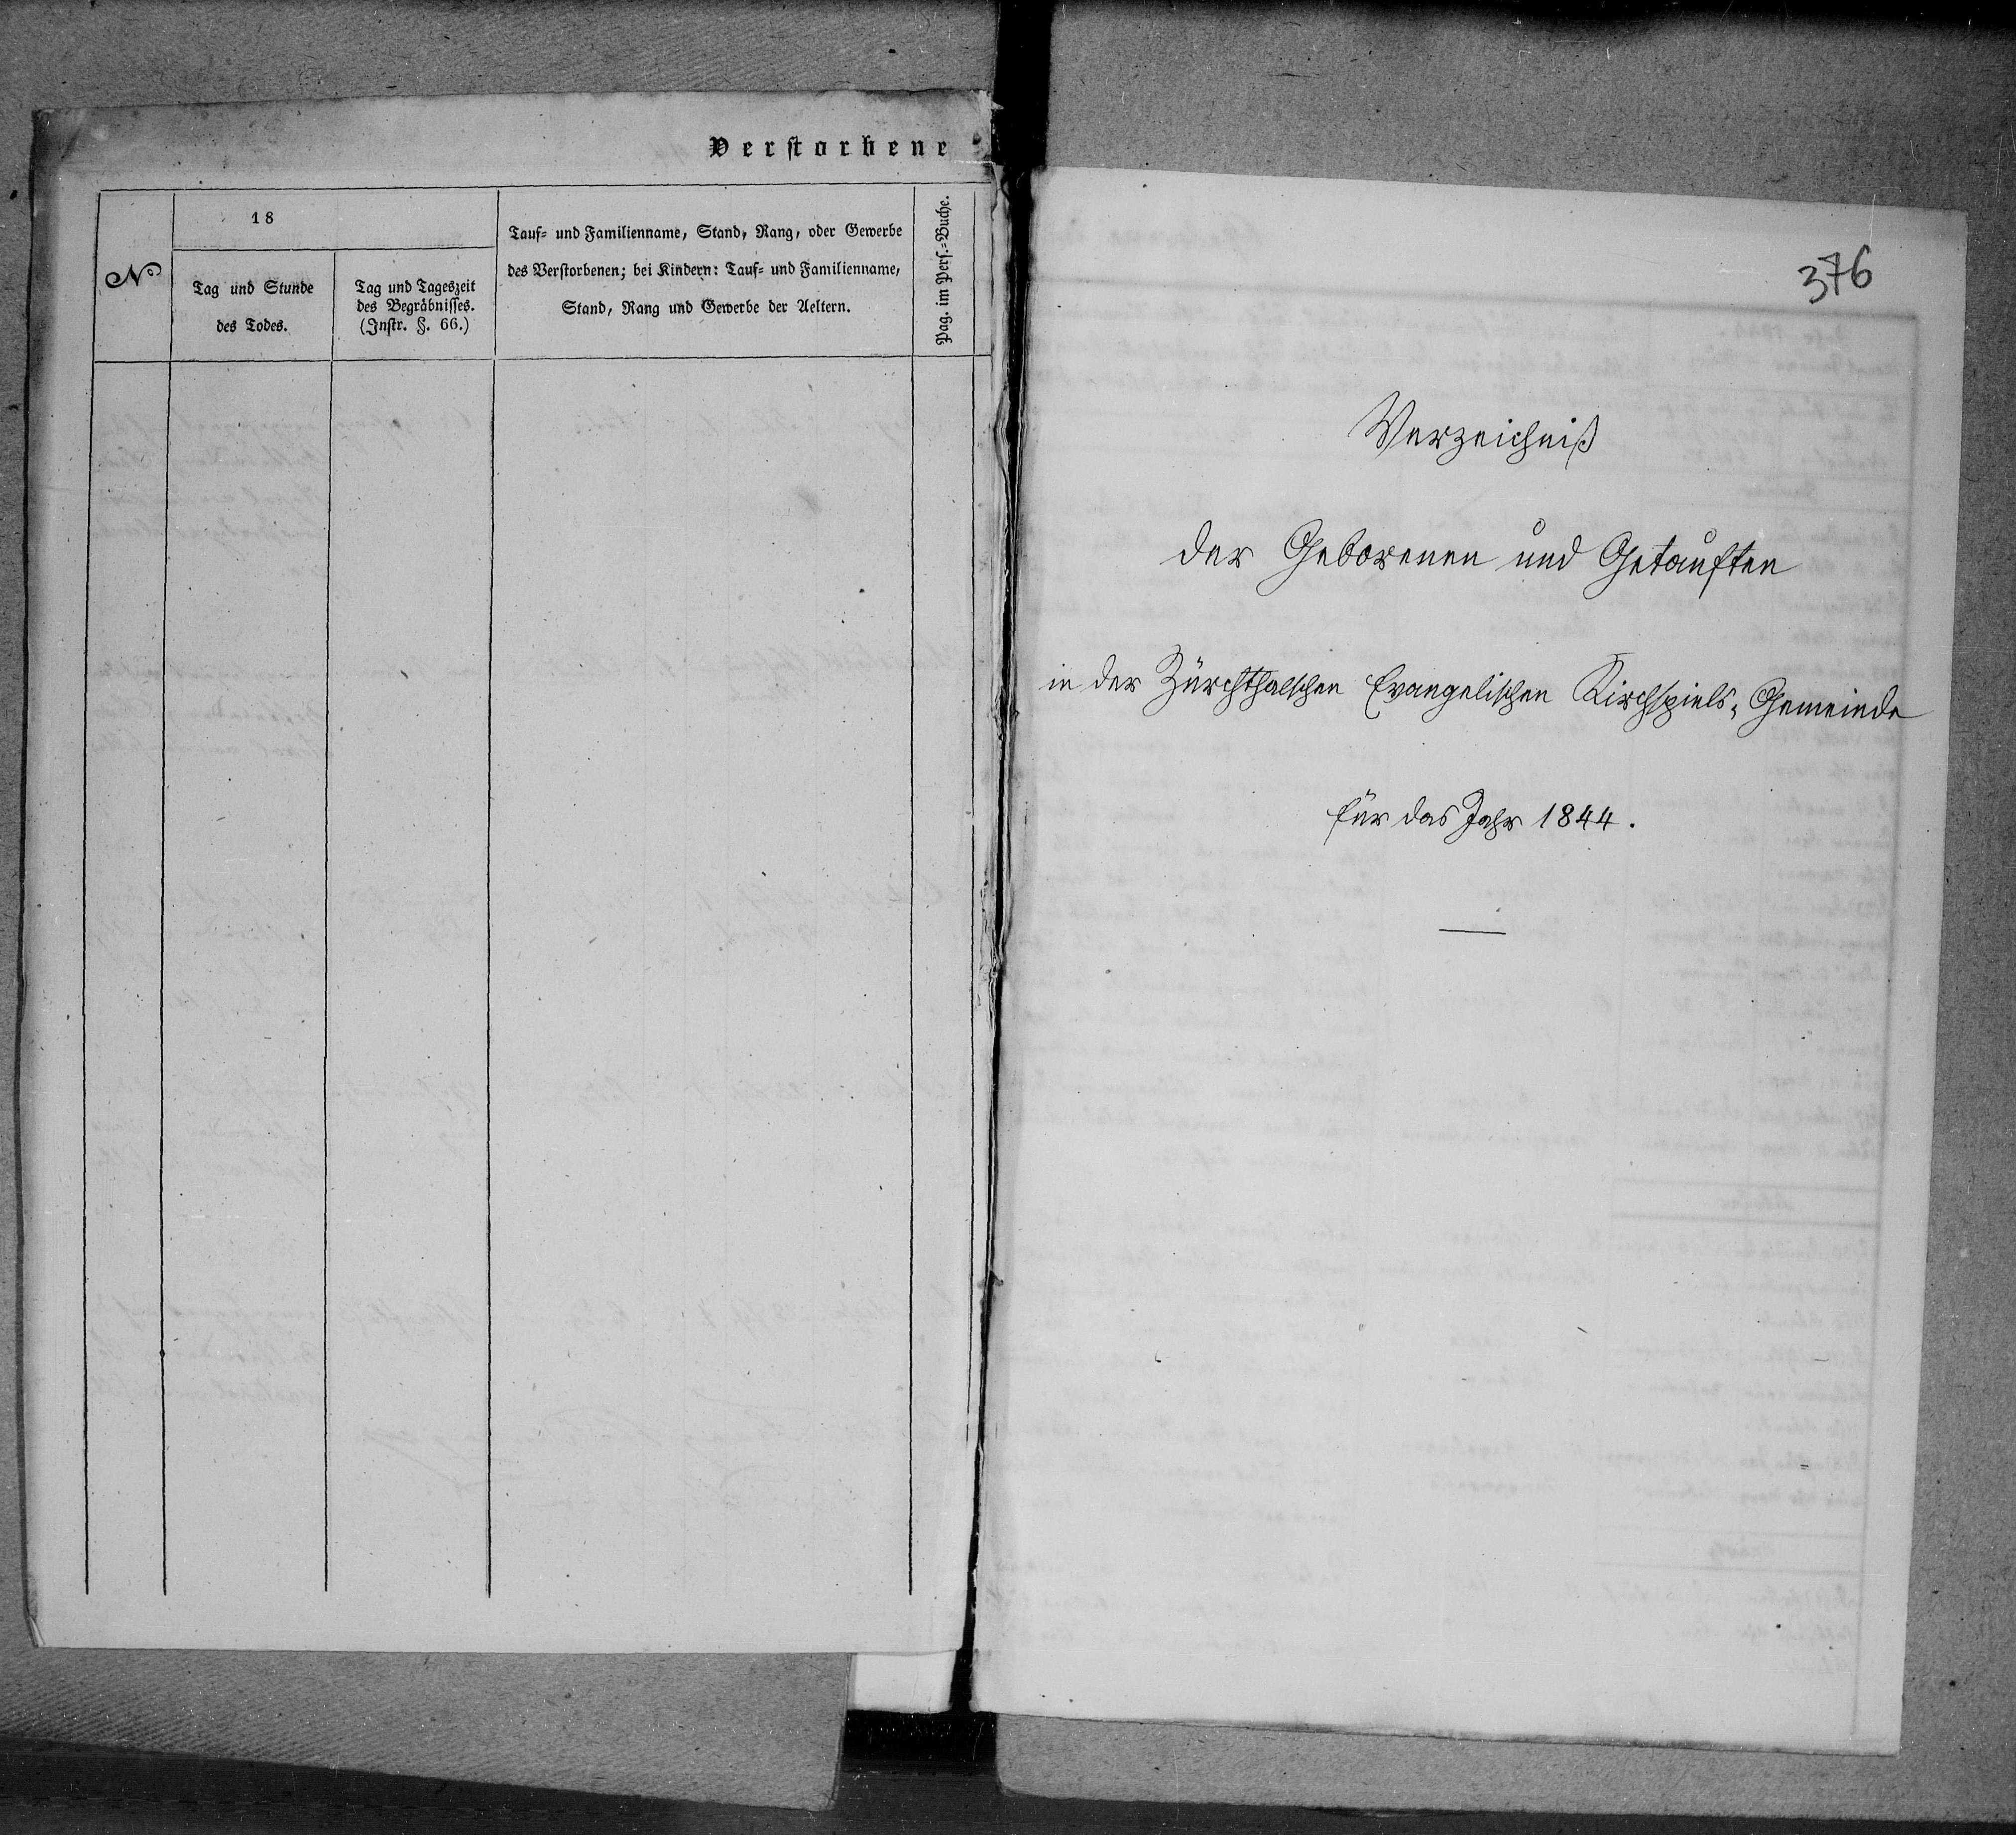 Verstorbene
No
18
Tag und Stunde
des Todes.
Tag und Tageszeit
des Begräbnisses.
(Instr. §. 66.)
Tauf- und Familienname, Stand, Rang, oder Gewerbe
des Verstorbenen; bei Kindern: Tauf- und Familienname,
Stand, Rang und Gewerbe der Aeltern.
Pag. im Pers.-Buche.
376
Verzeichniß
der Geborenen und Getauften
in der Zürchthalschen Evangelischen Kirchspiels-Gemeinde
für das Jahr 1844.